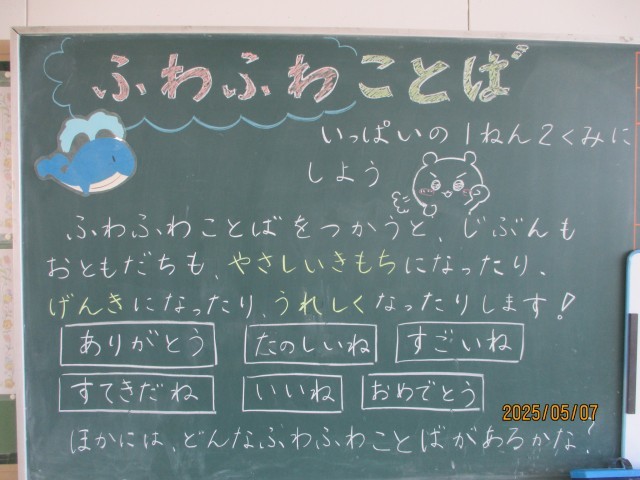 ふわふわことば
いっぱいの1ねん2くみに
しよう
ふわふわことばをつかうと、じぶんも
おともだちも、やさしいきもちになったり、
げんきになったり、うれしくなったりします!
ありがとう たのしいね すごいね
すてきだね いいね おめでとう
ほかには、どんなふわふわことばがあるかな!
2025/05/07